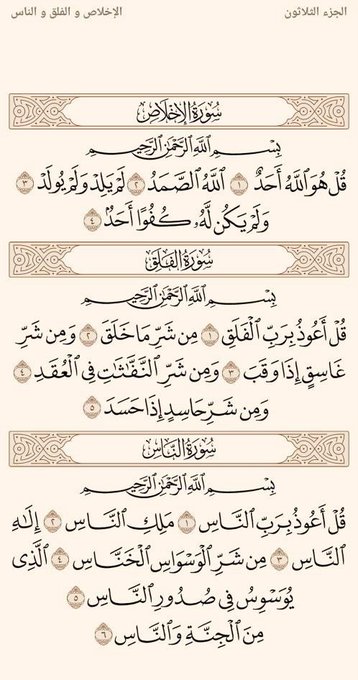 الجزء الثلاثون
الإخلاص و الفلق و الناس
سُورَةُ الإِخْلَاصِ
بِسْمِ ٱللَّهِ ٱلرَّحْمَٰنِ ٱلرَّحِيمِ
قُلْ هُوَ ٱللَّهُ أَحَدٌ ١ ٱللَّهُ ٱلصَّمَدُ ٢ لَمْ يَلِدْ وَلَمْ يُولَدْ ٣
وَلَمْ يَكُن لَّهُۥ كُفُوًا أَحَدٌۢ ٤
سُورَةُ الفَلَقِ
بِسْمِ ٱللَّهِ ٱلرَّحْمَٰنِ ٱلرَّحِيمِ
قُلْ أَعُوذُ بِرَبِّ ٱلْفَلَقِ ١ مِن شَرِّ مَا خَلَقَ ٢ وَمِن شَرِّ
غَاسِقٍ إِذَا وَقَبَ ٣ وَمِن شَرِّ ٱلنَّفَّٰثَٰتِ فِى ٱلْعُقَدِ ٤
وَمِن شَرِّ حَاسِدٍ إِذَا حَسَدَ ٥
سُورَةُ النَّاسِ
بِسْمِ ٱللَّهِ ٱلرَّحْمَٰنِ ٱلرَّحِيمِ
قُلْ أَعُوذُ بِرَبِّ ٱلنَّاسِ ١ مَلِكِ ٱلنَّاسِ ٢ إِلَٰهِ
ٱلنَّاسِ ٣ مِن شَرِّ ٱلْوَسْوَاسِ ٱلْخَنَّاسِ ٤ ٱلَّذِى
يُوَسْوِسُ فِى صُدُورِ ٱلنَّاسِ ٥
مِنَ ٱلْجِنَّةِ وَٱلنَّاسِ ٦